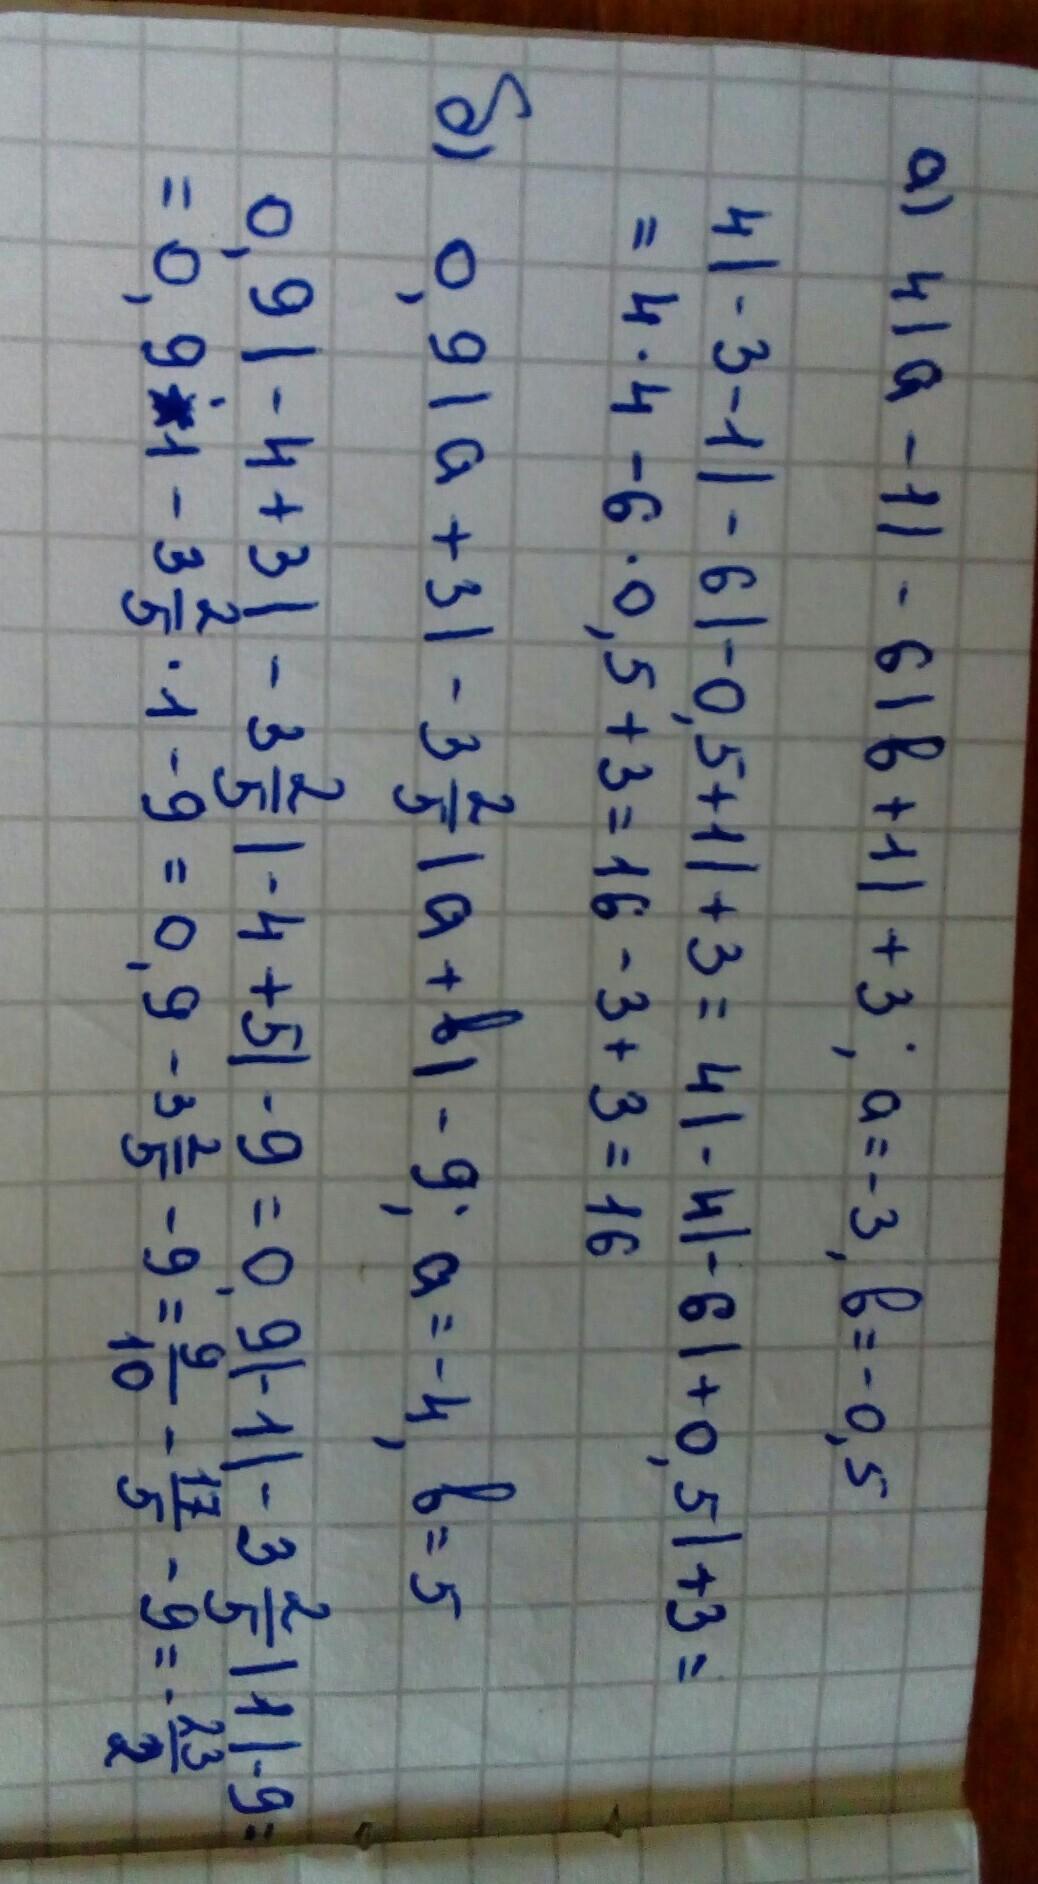 а) 4|a-1|-6|b+1|+3; a=-3, b=-0,5
4|-3-1|-6|-0,5+1|+3=4|-4|-6|+0,5|+3=
=4·4-6·0,5+3=16-3+3=16
б) 0,9|a+3|-3 2/5|a+b|-9; a=-4, b=5
0,9|-4+3|-3 2/5|-4+5|-9=0,9|-1|-3 2/5|1|-9=
=0,9·1-3 2/5·1-9=0,9-3 2/5-9=9/10-17/5-9=-23/2